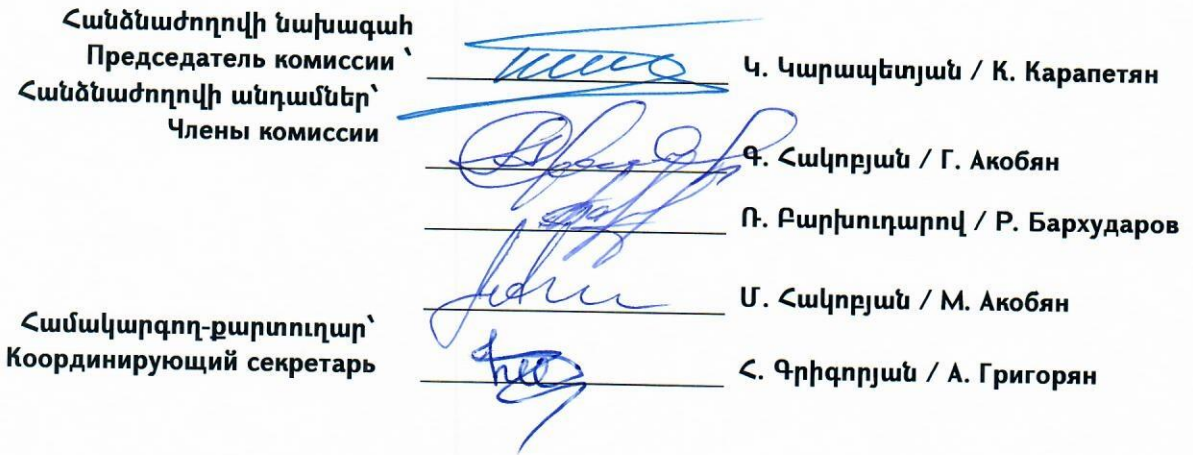 Հանձնաժողովի նախագահ
Председатель комиссии ՝
Կ. Կարապետյան / К. Карапетян
Հանձնաժողովի անդամներ՝
Члены комиссии
Գ. Հակոբյան / Г. Акобян
Ռ. Բարխուդարով / Р. Бархударов
Մ. Հակոբյան / М. Акобян
Համակարգող-քարտուղար՝
Координирующий секретарь
Հ. Գրիգորյան / А. Григорян